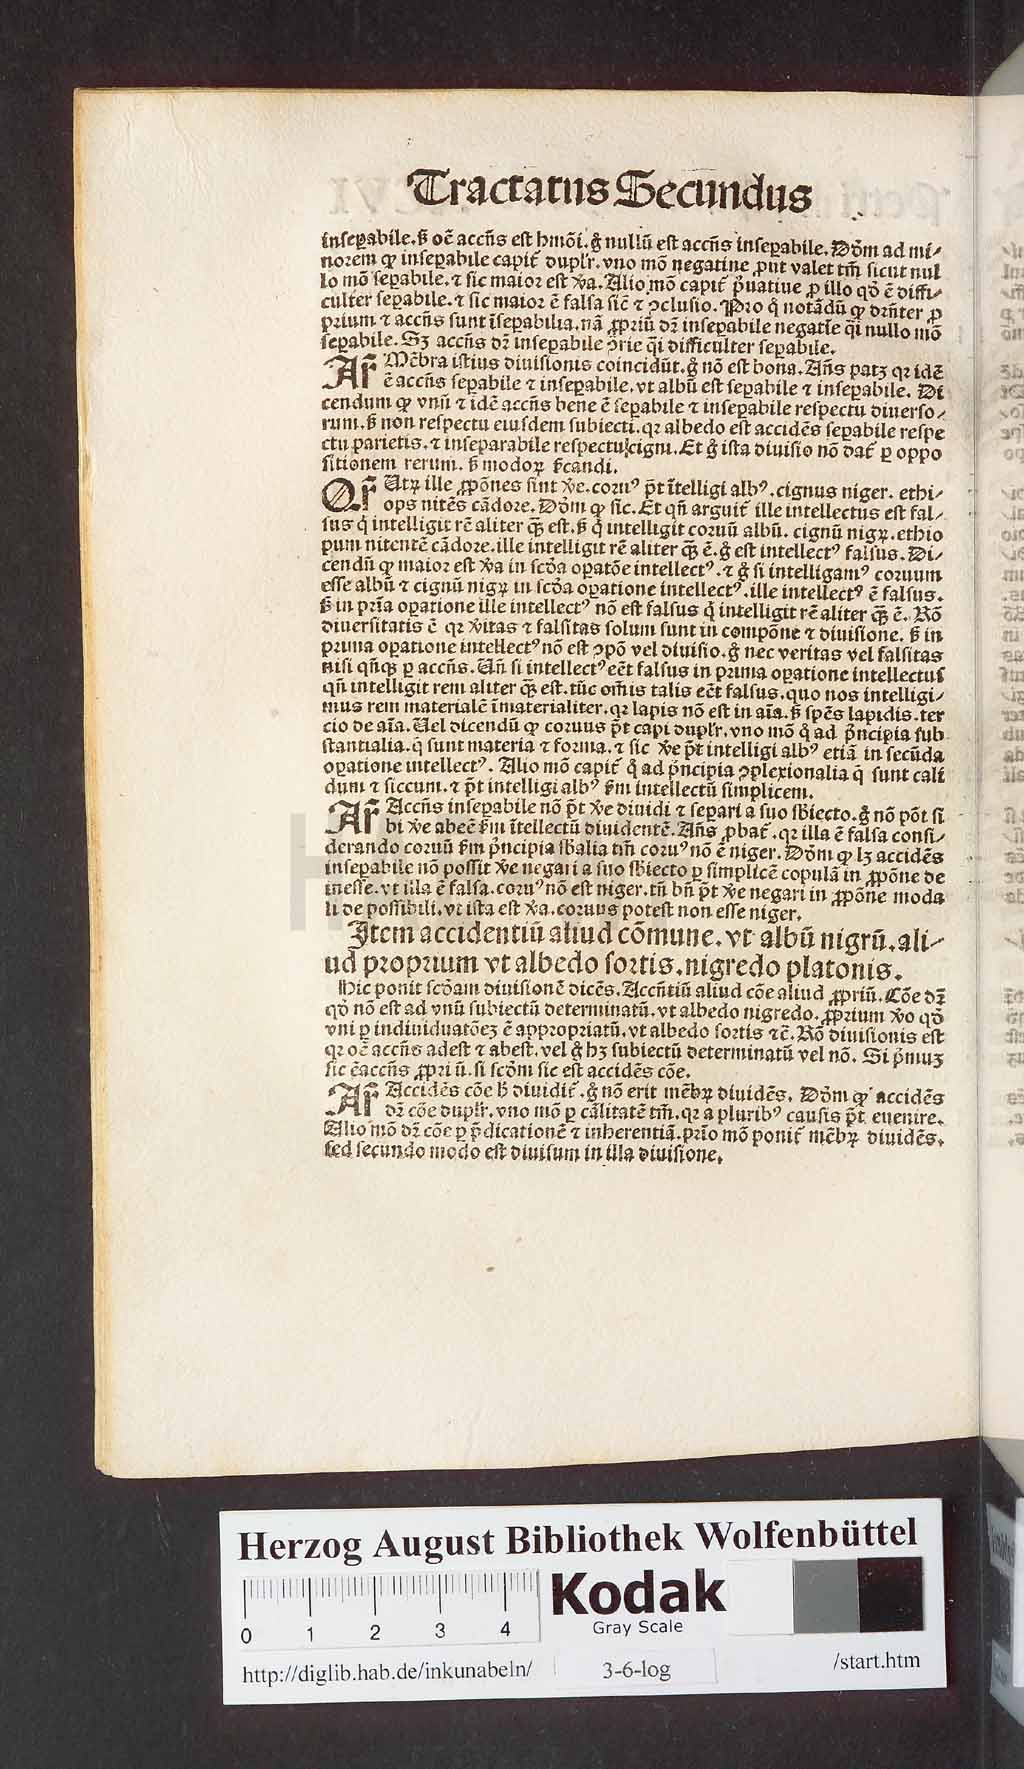 Tractatus Secundus
insep̱abile. sꝫ oē accn̄s est hmōi. gͦ nullū est accn̄s insep̱abile. Dōm ad mi⸗
norem ꝙ insep̱abile capit̃ duplr̃. vno mō negatiue ꝓut valet tm̄ sicut nul
lo mō sep̱abile. ⁊ sic maior est v̾a. Alio mō capit̃ p̾uatiue ꝓ illo qd̾ ē diffi⸗
culter sep̱abile. ⁊ sic maior ē falsa sic̄ ⁊ ꝯclusio. Pro q̊ notādū ꝙ dr̄nter ꝓ
prium ⁊ accn̄s sunt īsep̱abilia. nā ꝓpriū dr̄ insep̱abile negatīe q̄i nullo mō
sep̱abile. Sꝫ accn̄s dr̄ insep̱abile p̾rie q̄i difficulter sep̱abile.
Ar̃ Mēbra istius diuisionis coincidūt. gͦ nō est bona. An̄s patꝫ qꝛ idē
ē accn̄s sep̱abile ⁊ insep̱abile. vt albū est sep̱abile ⁊ insep̱abile. Di
cendum ꝙ vnū ⁊ idē accn̄s bene ē sep̱abile ⁊ insep̱abile respectu diuerso⸗
rum. sꝫ non respectu eiusdem subiecti. qꝛ albedo est accidēs sep̱abile respe
ctu parietis. ⁊ inseparabile respectu cigni. Et gͦ ista diuisio nō dat̃ ꝑ oppo
sitionem rerum. sꝫ modoꝝ signi̾ficandi.
Qr̃ Utꝝ ille ꝓpōnes sint v̾e. coruꝰ pōt ītelligi albꝰ. cignus niger. ethi⸗
ops nitēs cādore. Dōm ꝙ sic. Et qn̄ arguit̃ ille intellectus est fal⸗
sus q̇ intelligit rē aliter qᷓꝫ est. sꝫ q̇ intelligit coruū albū. cignū nigꝝ. ethio
pum nitentē cādore. ille intelligit rē aliter qᷓꝫ ē. gͦ est intellectꝰ falsus. Di⸗
cendū ꝙ maior est v̾a in scd̾a op̱atōe intellectꝰ. ⁊ gͦ si intelligamꝰ coruum
esse albū ⁊ cignū nigꝝ in scd̾a op̱atione intellectꝰ. ille intellectꝰ ē falsus.
sꝫ in pr̄ia op̱atione ille intellectꝰ nō est falsus q̇ intelligit rē aliter qᷓꝫ ē. Rō
diuersitatis ē qꝛ v̾itas ⁊ falsitas solum sunt in compōne ⁊ diuisione. sꝫ in
prima op̱atione intellectꝰ nō est ꝯpō vel diuisio. gͦ nec veritas vel falsitas
nisi qn̄qꝫ ꝑ accn̄s. Un̄ si intellectꝰ eēt falsus in prima op̱atione intellectus
qn̄ intelligit rem aliter qᷓꝫ est. tūc om̄is talis eēt falsus. quo nos intelligi⸗
mus rem materialē īmaterialiter. qꝛ lapis nō est in aīa. sꝫ spēs lapidis. ter
cio de aīa. Uel dicendū ꝙ coruus pōt capi duplr̃. vno mō q̊ ad p̾ncipia sub
stantialia. q̄ sunt materia ⁊ forma. ⁊ sic v̾e pōt intelligi albꝰ etiā in secūda
op̱atione intellectꝰ. Alio mō capit̃ q̊ ad p̾ncipia ꝯplexionalia q̄ sunt cali
dum ⁊ siccum. ⁊ pōt intelligi albꝰ sm̄ intellectū simplicem.
Ar̃ Accn̄s insep̱abile nō pōt v̾e diuidi ⁊ sep̱ari a suo sb̾iecto. gͦ nō pōt si
bi v̾e abeē sm̄ ītellectū diuidentē. An̄s ꝓbat̃. qꝛ illa ē falsa consi⸗
derando coruū sm̄ p̾ncipia sb̾alia tm̄ coruꝰ nō ē niger. Dōm ꝙ lꝫ accidēs
insep̱abile nō possit v̾e negari a suo sb̾iecto ꝑ simplicē copulā in ꝓpōne de
inesse. vt illa ē falsa. coruꝰ nō est niger. tn̄ bn̄ pōt v̾e negari in ꝓpōne moda
li de possibili. vt ista est v̾a. coruus potest non esse niger.
Item accidentiū aliud cōmune. vt albū nigrū. ali⸗
ud proprium vt albedo sortis. nigredo platonis.
Hic ponit scd̾am diuisionē dicēs. Accn̄tiū aliud cōe aliud ꝓpriū. Cōe dr̄
qd̾ nō est ad vnū subiectū determinatū. vt albedo nigredo. ꝓprium v̾o qd̾
vni ꝑ indiuiduatōeꝫ ē appropriatū. vt albedo sortis ⁊c̄. Rō diuisionis est
qꝛ oē accn̄s adest ⁊ abest. vel gͦ hꝫ subiectū determinatū vel nō. Si p̾muꝫ
sic ē accn̄s ꝓpriū. si scd̾m sic est accidēs cōe.
Ar̃ Accidēs cōe h̾ diuidit̃. gͦ nō erit mēbꝝ diuidēs. Dōm ꝙ accidēs
dr̄ cōe duplr̃. vno mō ꝑ cālitatē tm̄. qꝛ a pluribꝰ causis pōt euenire.
Alio mō dr̄ cōe ꝑ p̾dicationē ⁊ inherentiā. prīo mō ponit̃ mēbꝝ diuidēs.
sed secundo modo est diuisum in illa diuisione.
Herzog August Bibliothek Wolfenbüttel
Kodak
Gray Scale
0 1 2 3 4
http://diglib.hab.de/inkunabeln/ 3-6-log /start.htm